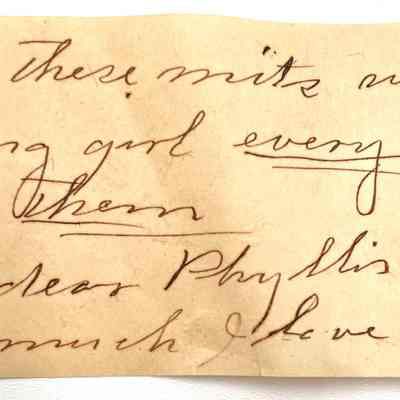 These mits
girl every
them
dear Phyllis
much I love